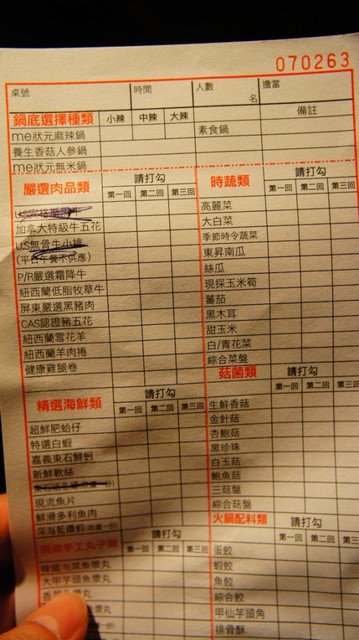 070263
桌號 時間 人數 名 擔當
鍋底選擇種類 小辣 中辣 大辣 備註
me狀元麻辣鍋 素食鍋
養生香菇人參鍋
me狀元無米鍋
嚴選肉品類 請打勾 第一回 第二回 第三回
加拿大特級牛五花
US無骨牛小排
(平日午餐不供應)
P/R嚴選霜降牛
紐西蘭低脂牧草牛
屏東嚴選黑豬肉
CAS認證豬五花
紐西蘭雪花羊
紐西蘭羊肉捲
健康雞腿卷
時蔬類 請打勾 第一回 第二回 第三回
高麗菜
大白菜
季節時令蔬菜
東昇南瓜
絲瓜
現採玉米筍
蕃茄
黑木耳
甜玉米
白/青花菜
綜合菜盤
精選海鮮類 請打勾 第一回 第二回 第三回
超鮮肥蛤仔
特選白蝦
嘉義東石鮮蚵
新鮮軟絲
現流魚片
鮮滑多利魚肉
菇菌類 請打勾 第一回 第二回 第三回
生鮮香菇
金針菇
杏鮑菇
黑珍珠
白玉菇
鮑魚菇
三菇盤
綜合菇盤
手工丸子類 請打勾 第一回 第二回 第三回
大甲芋頭魚漿丸
火鍋配料類 請打勾 第一回 第二回 第三回
蛋餃
蝦餃
魚餃
綜合餃
甲仙芋頭角
排骨酥